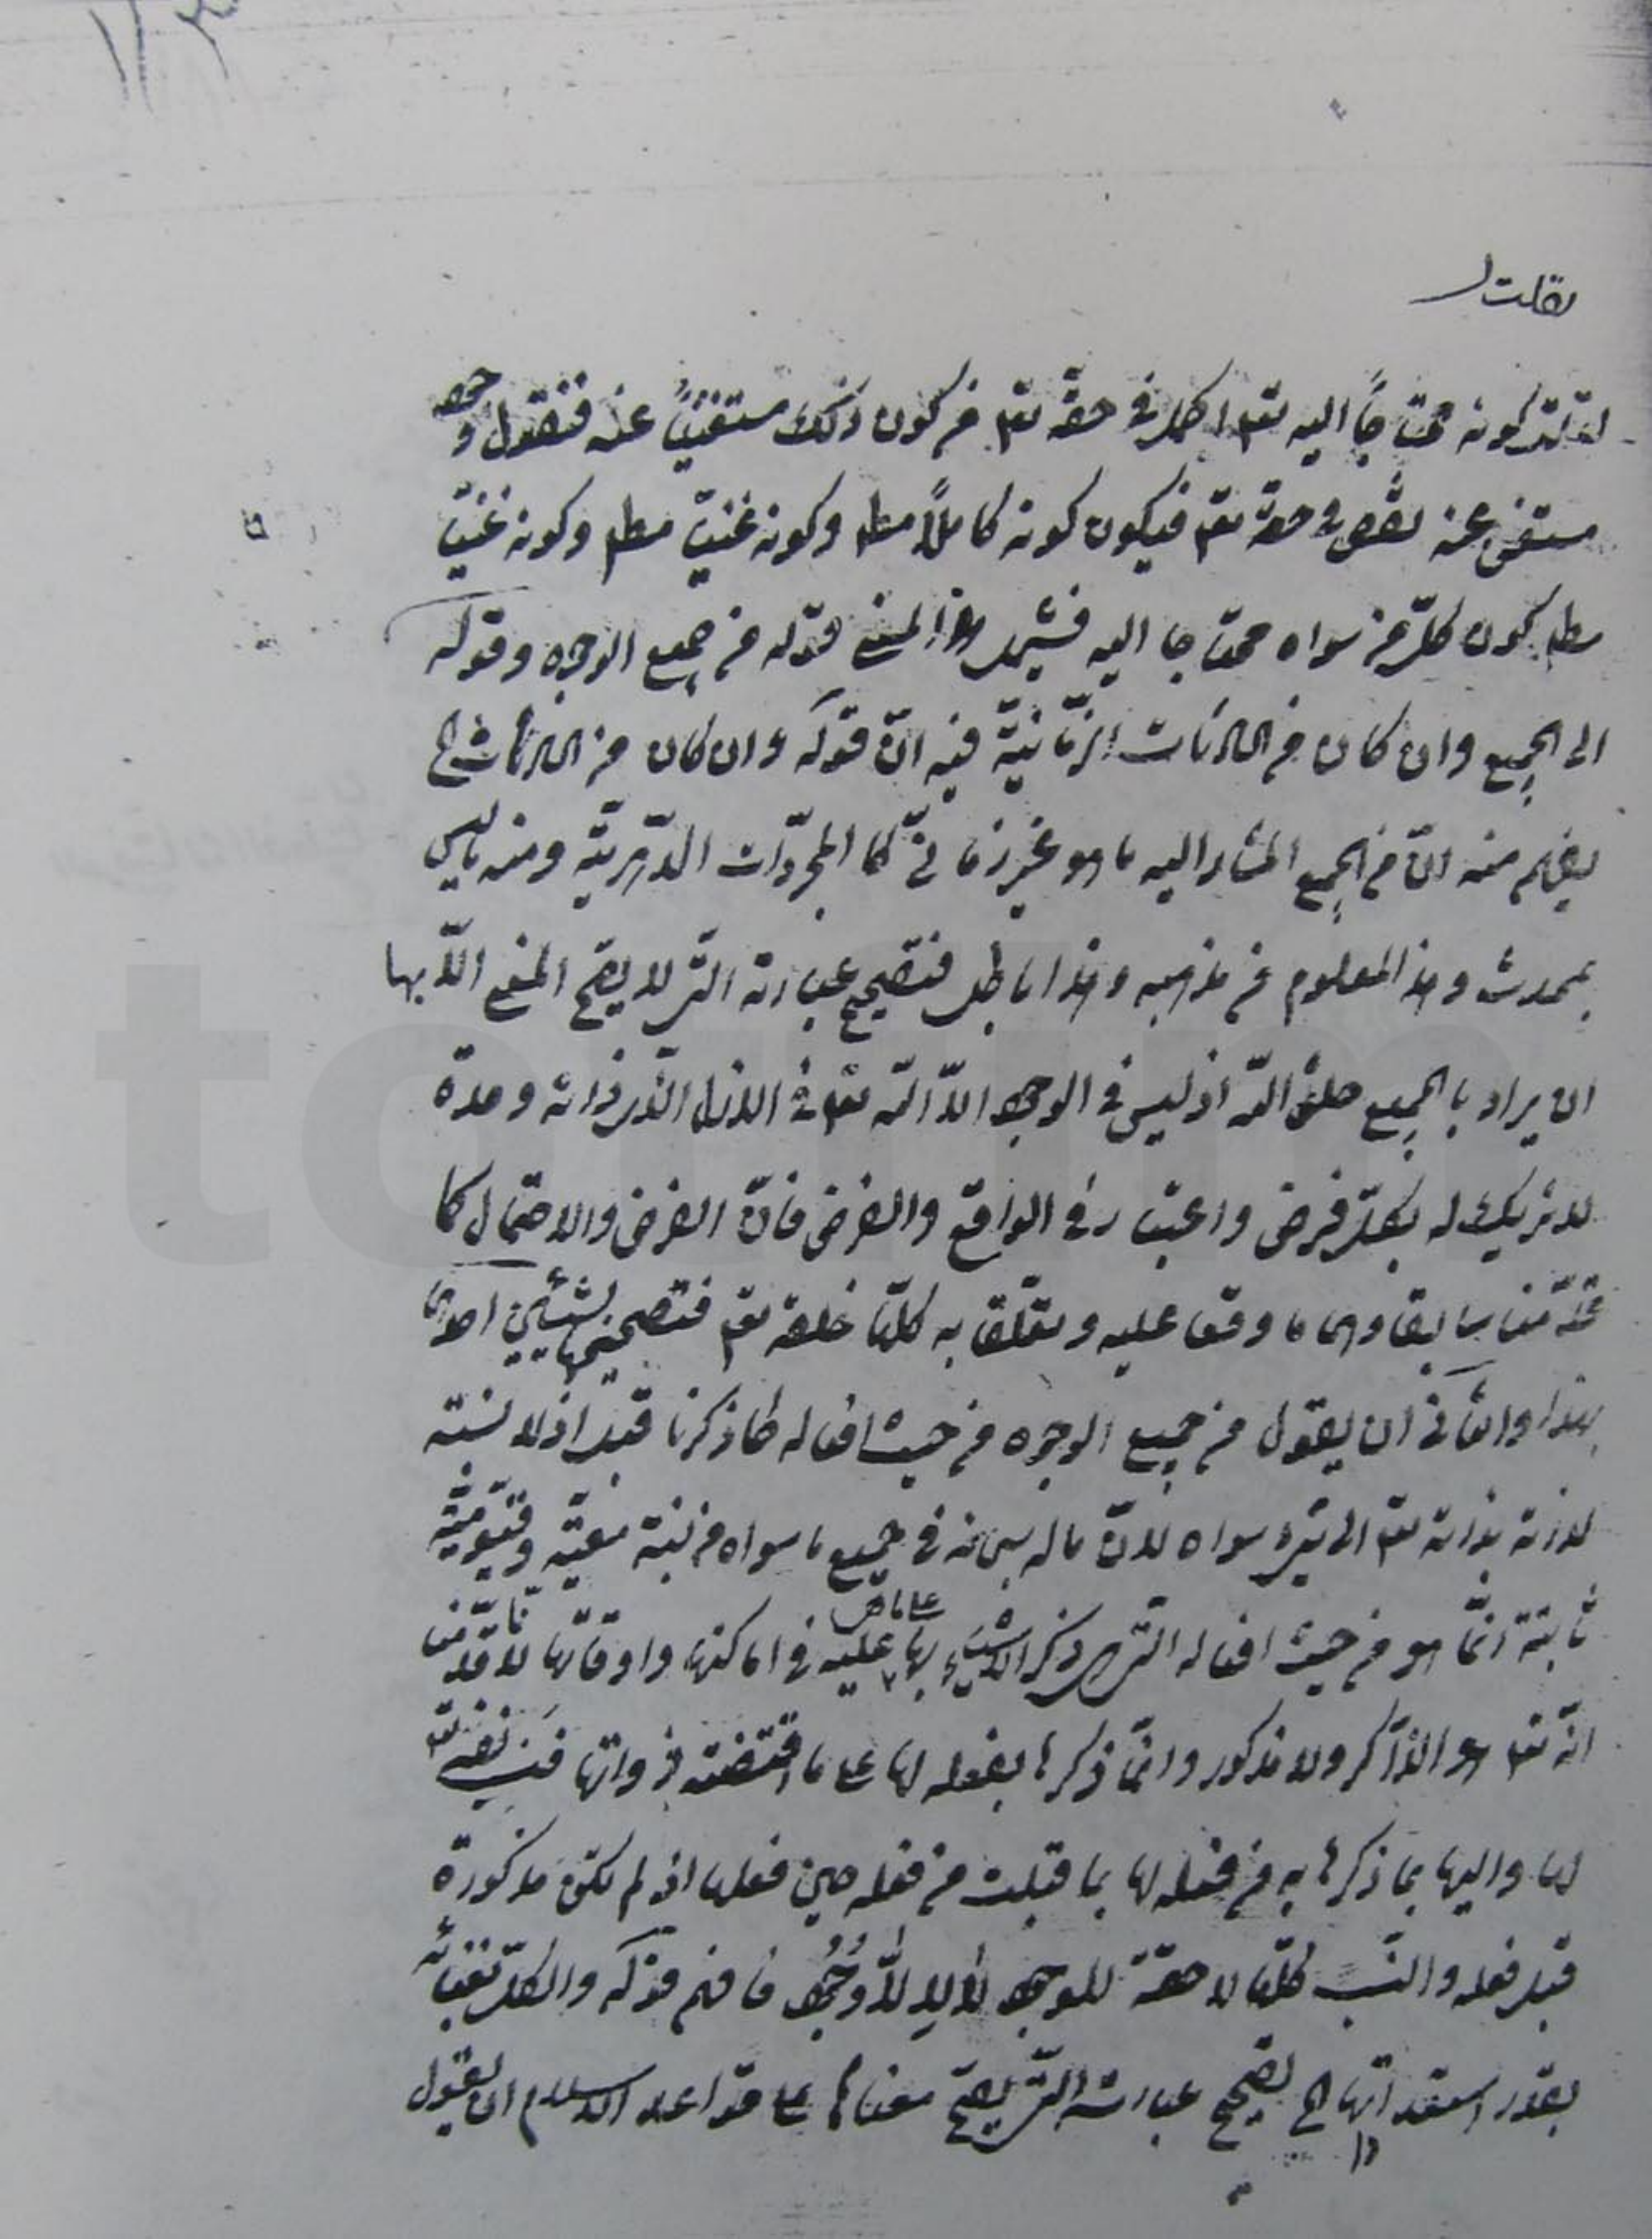 كونه محتاجاً اليه تع اكمل في حقه تع من كون ذلك مستغنياً عنه فنقول وجود
مستغن عنه نقص في حقه تع فيكون كونه كاملاً مط وكونه غنيّاً مط وكونه غنيّا
مط كون كلّ من سواه محتاجا اليه فيشمل هذا المعنى قوله من جميع الوجوه وقوله
الى الجميع وان كان من الحادثات الزمّانيّة فيه انّ قوله وان كان من الحادثات الخ
يفهم منه انّ من الجميع المشار اليه ما هو غير زمانيّ كا المجرّدات الدّهريّة ومنه ما ليس
بمحدث وهذا المعلوم من مذهبه وهذا باطل فتصحيح عبارته التى لا يصحّ المعنى الّا بها
ان يراد بالجميع خلق اللّه اذ ليس في الوجود الّا اللّه تع في الازل الّذى ذاته وحده
لا شريك له بكلّ فرض واعتبار في الواقع والفرض فانّ الفرض والاحتمال كما
قدّمنا سابقا وهما ما وقعا عليه وتعلّقا به كلّها خلقه تع فتصحيحها بشيئين احدهما
بهذا والثانى ان يقول من جميع الوجوه من حيث افعاله كما ذكرنا قبل اذ لا نسبة
لذاته بذاته تع الى شيء سواه لانّ ما له سبحانه في جميع ما سواه من نسبة معيّة وقيّوميّة
ثابتة انّما هو من حيث افعاله التى هى ذكر الاشياء بها على ما هى عليه في اماكنها واوقاتها لما قدّمنا
انّه تع هو الذّاكر ولا مذكور وانّما ذكرها بفعله لها على ما اقتضته ذواتها
لها واليها بما ذكرها به من فعله لها بما قبلت من فعله حين فعلها اذ لم تكن مذكورة
قبل فعله والنّسب كلّها لاحقة للوجود فافهم قوله والكلّ
بقدر استعداتها الخ تصحيح عبارته التى يصحّ معناها على قواعد الاسلام ان يقول